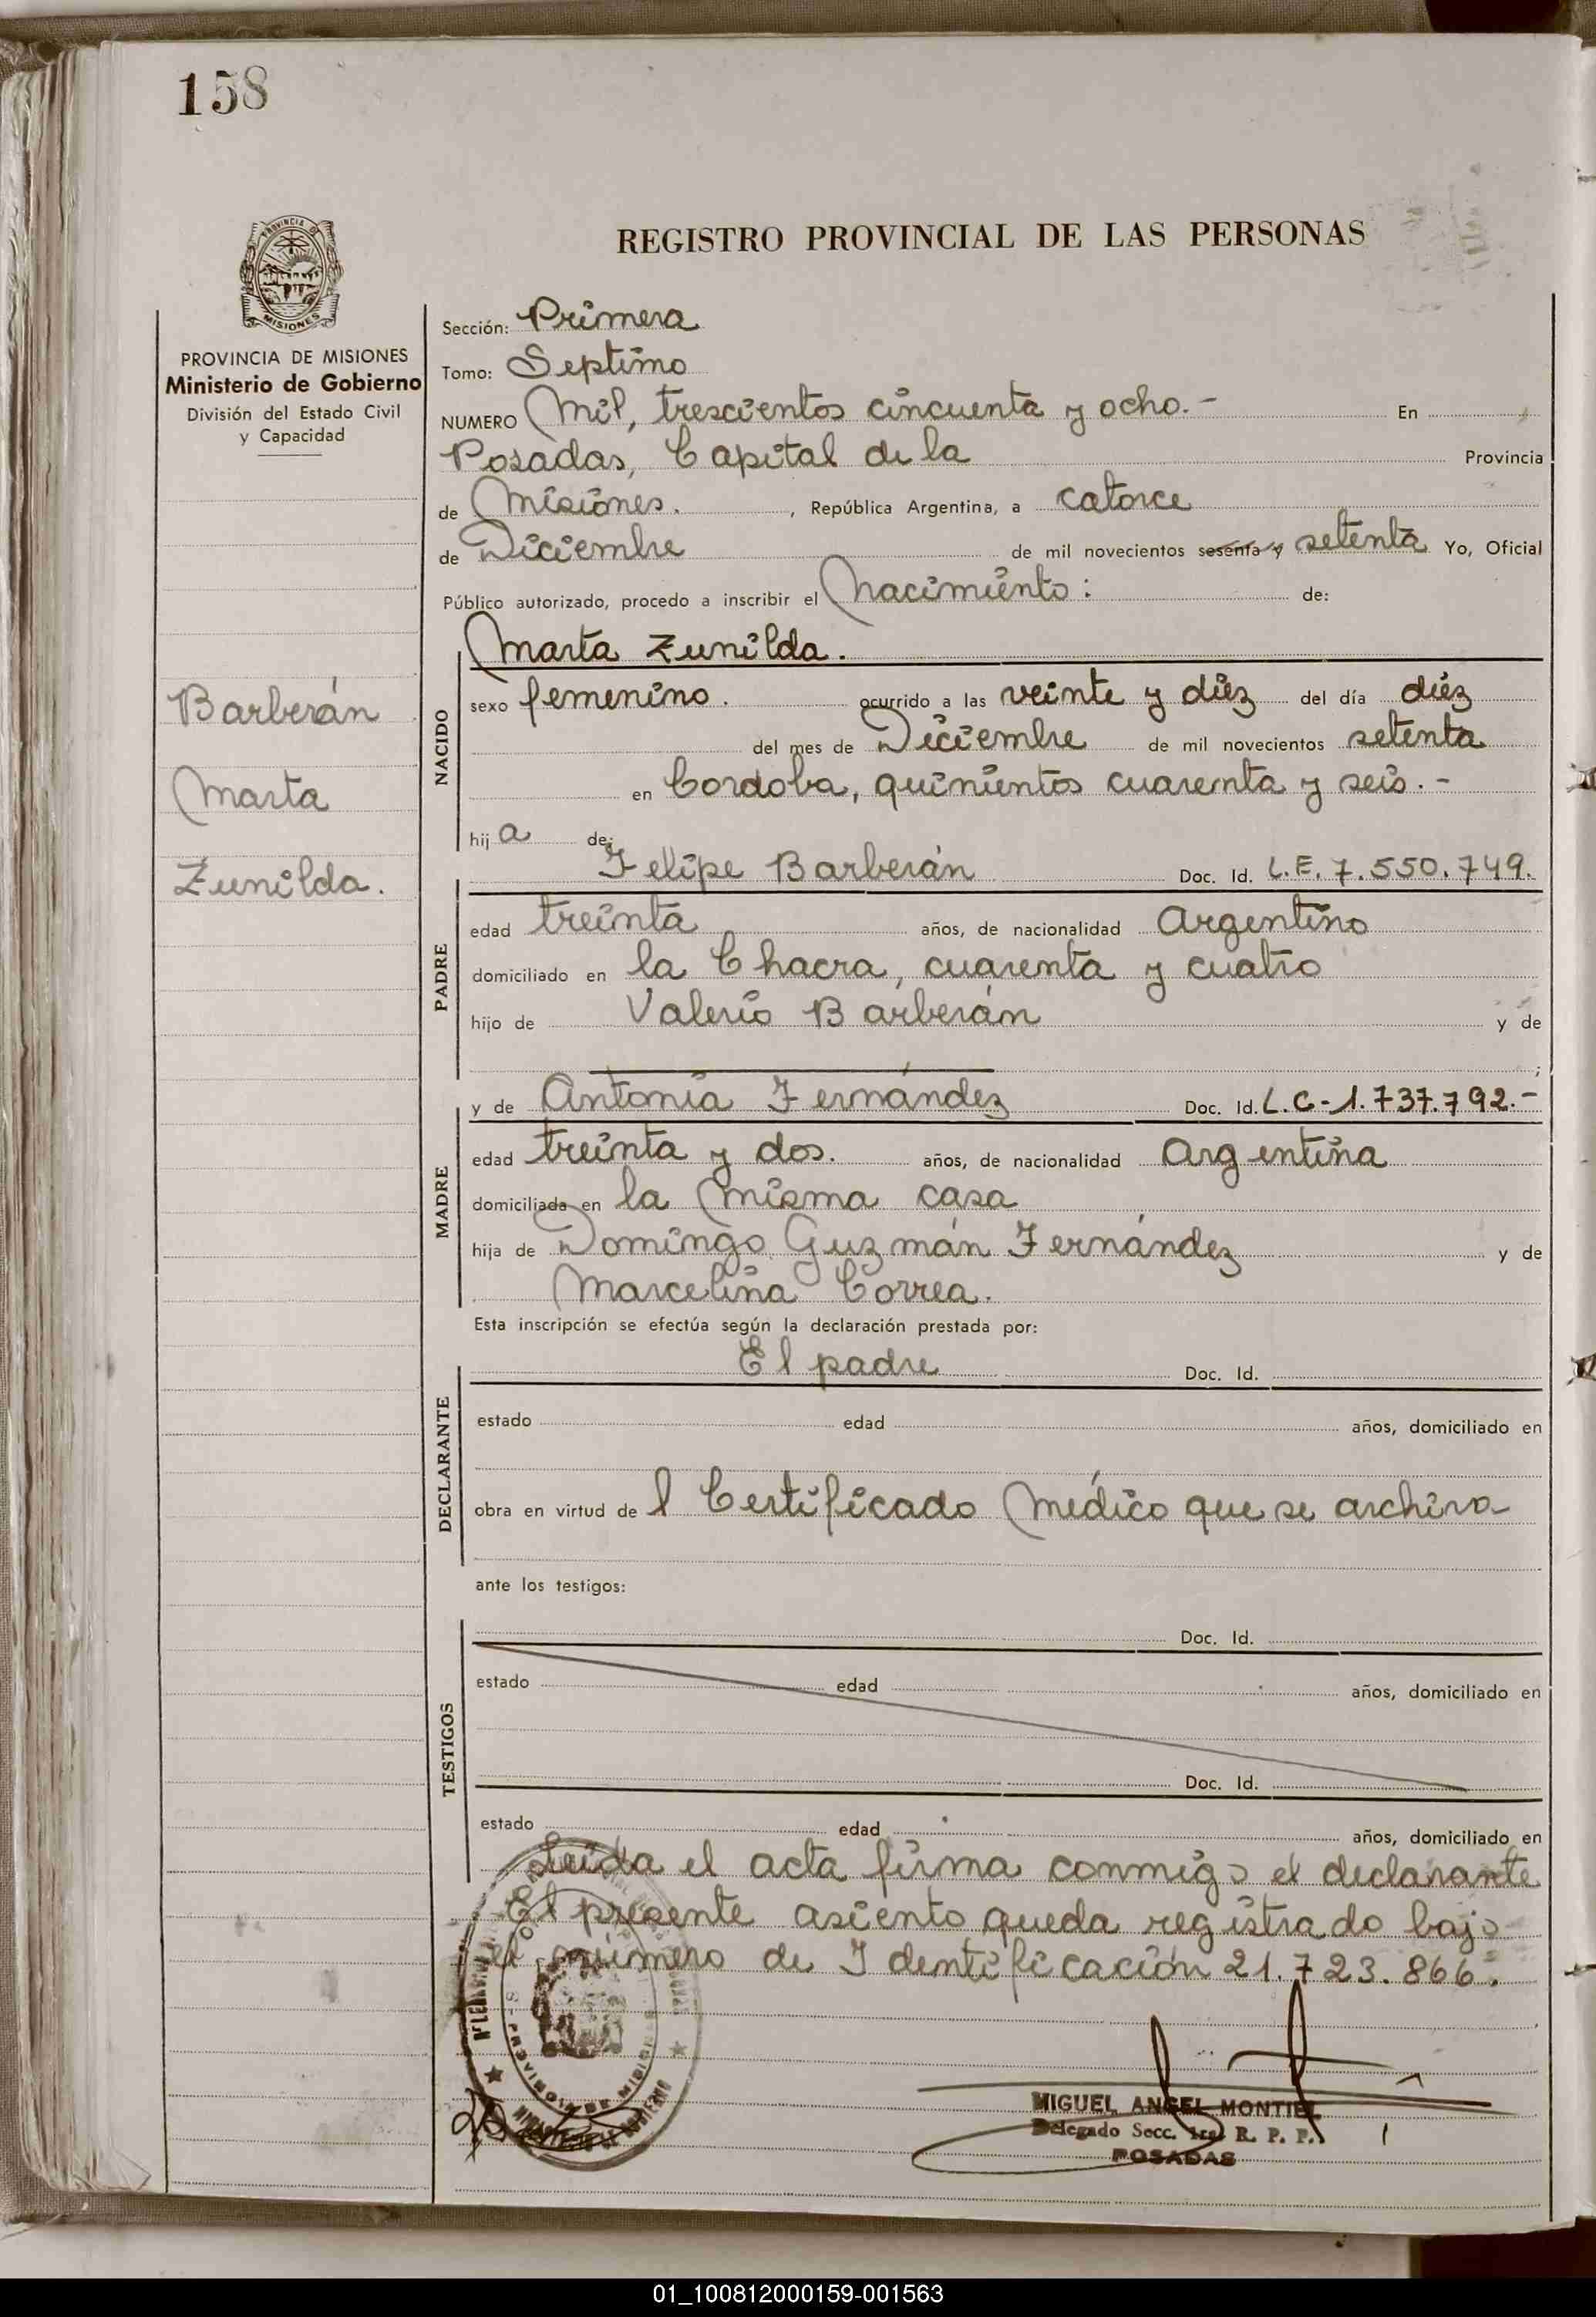 158
PROVINCIA DE
MISIONES
REGISTRO PROVINCIAL DE LAS PERSONAS
PROVINCIA DE MISIONES
Ministerio de Gobierno
División del Estado Civil
y Capacidad
Barberán
Marta
Zunilda.
Sección: Primera
Tomo: Septimo
NUMERO Mil, trescientos cincuenta y ocho.- En
Posadas, Capital de la Provincia
de Misiones. , República Argentina, a catorce
de Diciembre de mil novecientos sesenta y setenta Yo, Oficial
Público autorizado, procedo a inscribir el Nacimiento: de:
Marta Zunilda.
NACIDO
sexo femenino. ocurrido a las veinte y diéz del día diéz
del mes de Diciembre de mil novecientos setenta
en Cordoba, quinientos cuarenta y seis.-
hij a de:
Felipe Barberán Doc. Id. L.E. 7.550.749.
PADRE
edad treinta años, de nacionalidad Argentino
domiciliado en la Chacra, cuarenta y cuatro
hijo de Valerio Barberán y de
;
y de Antonia Fernández Doc. Id. L.C-1.737.792.-
MADRE
edad treinta y dos. años, de nacionalidad Argentina
domiciliada en la misma casa
hija de Domingo Guzmán Fernández y de
Marcelina Correa.
Esta inscripción se efectúa según la declaración prestada por:
El padre Doc. Id.
DECLARANTE
estado edad años, domiciliado en
obra en virtud de l Certificado Médico que se archiva
ante los testigos:
Doc. Id.
TESTIGOS
estado edad años, domiciliado en
Doc. Id.
estado edad años, domiciliado en
Leída el acta firma conmigo el declarante
El presente asiento queda registrado bajo
el número de Identificación 21.723.866.
MIGUEL ANGEL MONTIEL
Delegado Secc. 1ra. R. P. P.
POSADAS
01_100812000159-001563